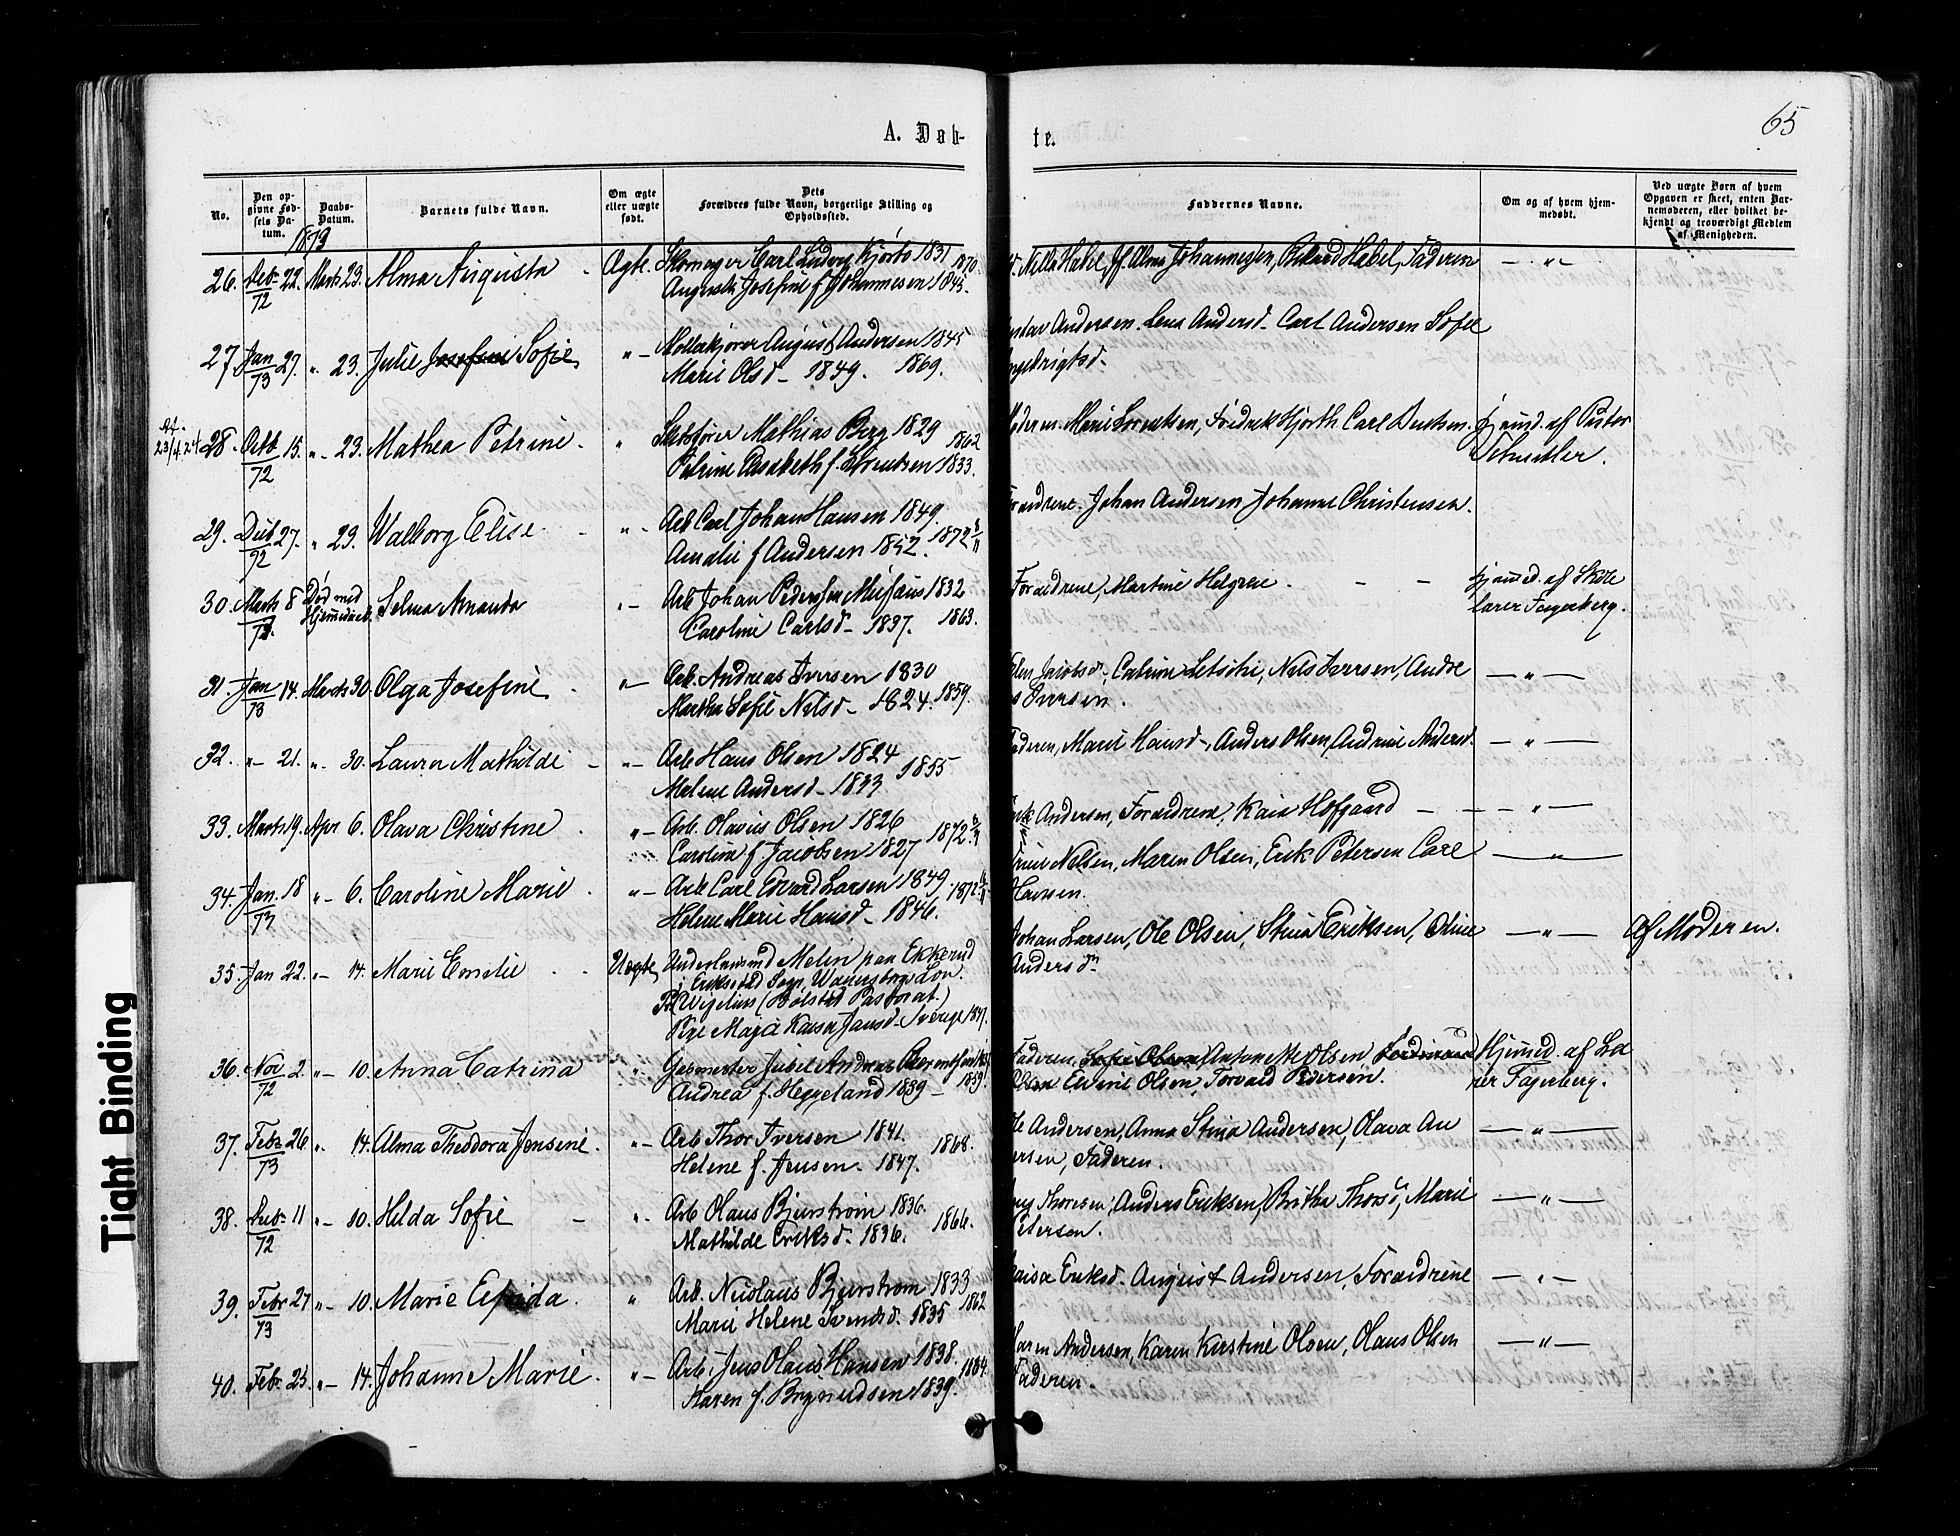 A. Døb-
te.
65
No.
Den op-
givne Fød-
sels Da-
tum.
Daabs-
Datum.
Barnets fulde Navn.
Om ægte
eller uægte
født.
Dets
Forældres fulde Navn, borgerlige Stilling og
Opholdssted.
Faddernes Navne.
Om og af hvem hjem-
medøbt.
Ved uægte Børn af hvem
Opgaven er skeet, enten Bar-
nemoderen, eller hvilket be-
kjendt og troværdigt Medlem
af Menigheden.
1873
26. 22. Marts 23. Alma Augusta Ægte. Skomager Carl Ludvig Kjørbo 1831 1870.
72 Augusta Josefine f Johannesen 1843.
Nilla Habel, Alma Johannesen, Habel, Faderen — " —
27 Jan 27. " 23. Julie Josefine Sofie " — Møllekjører August Andersen 1845
73 Marie Olsd — 1849. 1869.
Andersen. Lena Andersd. Carl Andersen Sofie
at.
23/4.24 28. Octb 15. " 23. Mathea Petrine. " Mathias Berg 1829 1862
72 Petrine Elisabeth f. Lorentsen 1833.
Marie Lorentsen, Fredrik Hjorth Carl hjemmed. af Pastor
29. 27. " 23. Walborg Elise " — Arb Carl Johan Hansen 1849.
72 Amalie f Andersen 1852. 1872
Forældrene. Johan Andersen Johanne Christensen.
30. Marts 8 Død med Selma Amanda " — Arb Johan 1832
73. Hjemmedaab. Caroline Carlsd — 1837. 1863.
Forældrene, Martine — — hjemmed. af Skole
lærer Fagerberg.
31. Jan 14. Marts 30. Olga Josefine " — Arb. Andreas Iversen 1830
73 Martha Sofie Nilsd — 1824. 1859.
Jacobsd. Nils Iversen, Andre — " —
s Iversen.
32. " 21. " 30. Laura Mathilde — " — Arb Hans Olsen 1824
Helene Andersd — 1833 1855
Faderen, Marie Hansd —, Anders Olsen, Andrine Andersd. — " —
33. Marts 19. Apr 6. Olava Christine " — Arb. Olavus Olsen 1826
Caroline f Jacobsen 1827 1872
Andersen, Forældrene, Hofgaard — — " —
34. Jan. 18 " — 6. Caroline Marie " — Arb Carl Edvard Larsen 1849.
73 Helene Marie Hansd — 1846. 1872
Nilsen, Maren Olsen, Erik Petersen Carl — " —
Hansen.
35. Jan 22. " — 14. Marie Emilie Uægte Melin paa Ekkerud
i Sogn, Wenersborgs Län.
(Bølstad Pastorat.)
Pige Maja Kaisa Jansd — Sverige 1847.
Johan Larsen, Ole Olsen, Stina Eriksen, Oline — " — Af Moderen.
Andersdn
36. Nov 2. " — 10. Anna Catrina " Andreas
72 Andrea f. Heggeland 1839 — 1859.
Faderen, Sofie Olsen, Antonette Olsen Ferdinand Hjemmed. af Læ
Olsen Edvine Olsen, Torvald Pedersen. rer Fagerberg.
37. Febr 26 " 14. Alma Theodora Jensine. " — Arb Thor Iversen 1841.
73 Helene f. Jensen. 1847. 1868.
Andersen, Anna Stina Andersen, Olava An — " —
ersen, Faderen.
38. 11 " — 10. Hilda Sofie — " Arb Olaus Bjerstrøm 1836.
72 Mathilde Eriksd. 1836. 1866.
Thoresen, Anders Eriksen, Britha Thorsd, Marie — " —
Petersen.
39. Febr 27 " — 10. Marie " Arb. Nicolaus Bjerstrøm 1833
73 Marie Helene Svendsd. 1835 1862
Kaisa Eriksd. August Andersen, Forældrene — " —
40. Febr. 25 " — 14. Johanne Marie. " — Arb. Jens Olaus Hansen 1838.
Karen f. Brynildsen 1839. 1864.
Maren Andersen, Karen Kirstine Olsen, Olaus Olsen — " —
Faderen.
Tight Binding